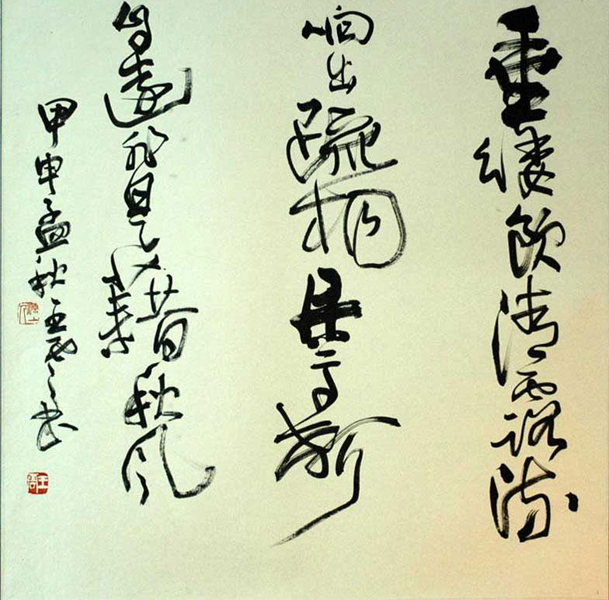 垂緌飲清露流
响出疏桐居高聲
自遠非是藉秋风
甲申孟秋王之书